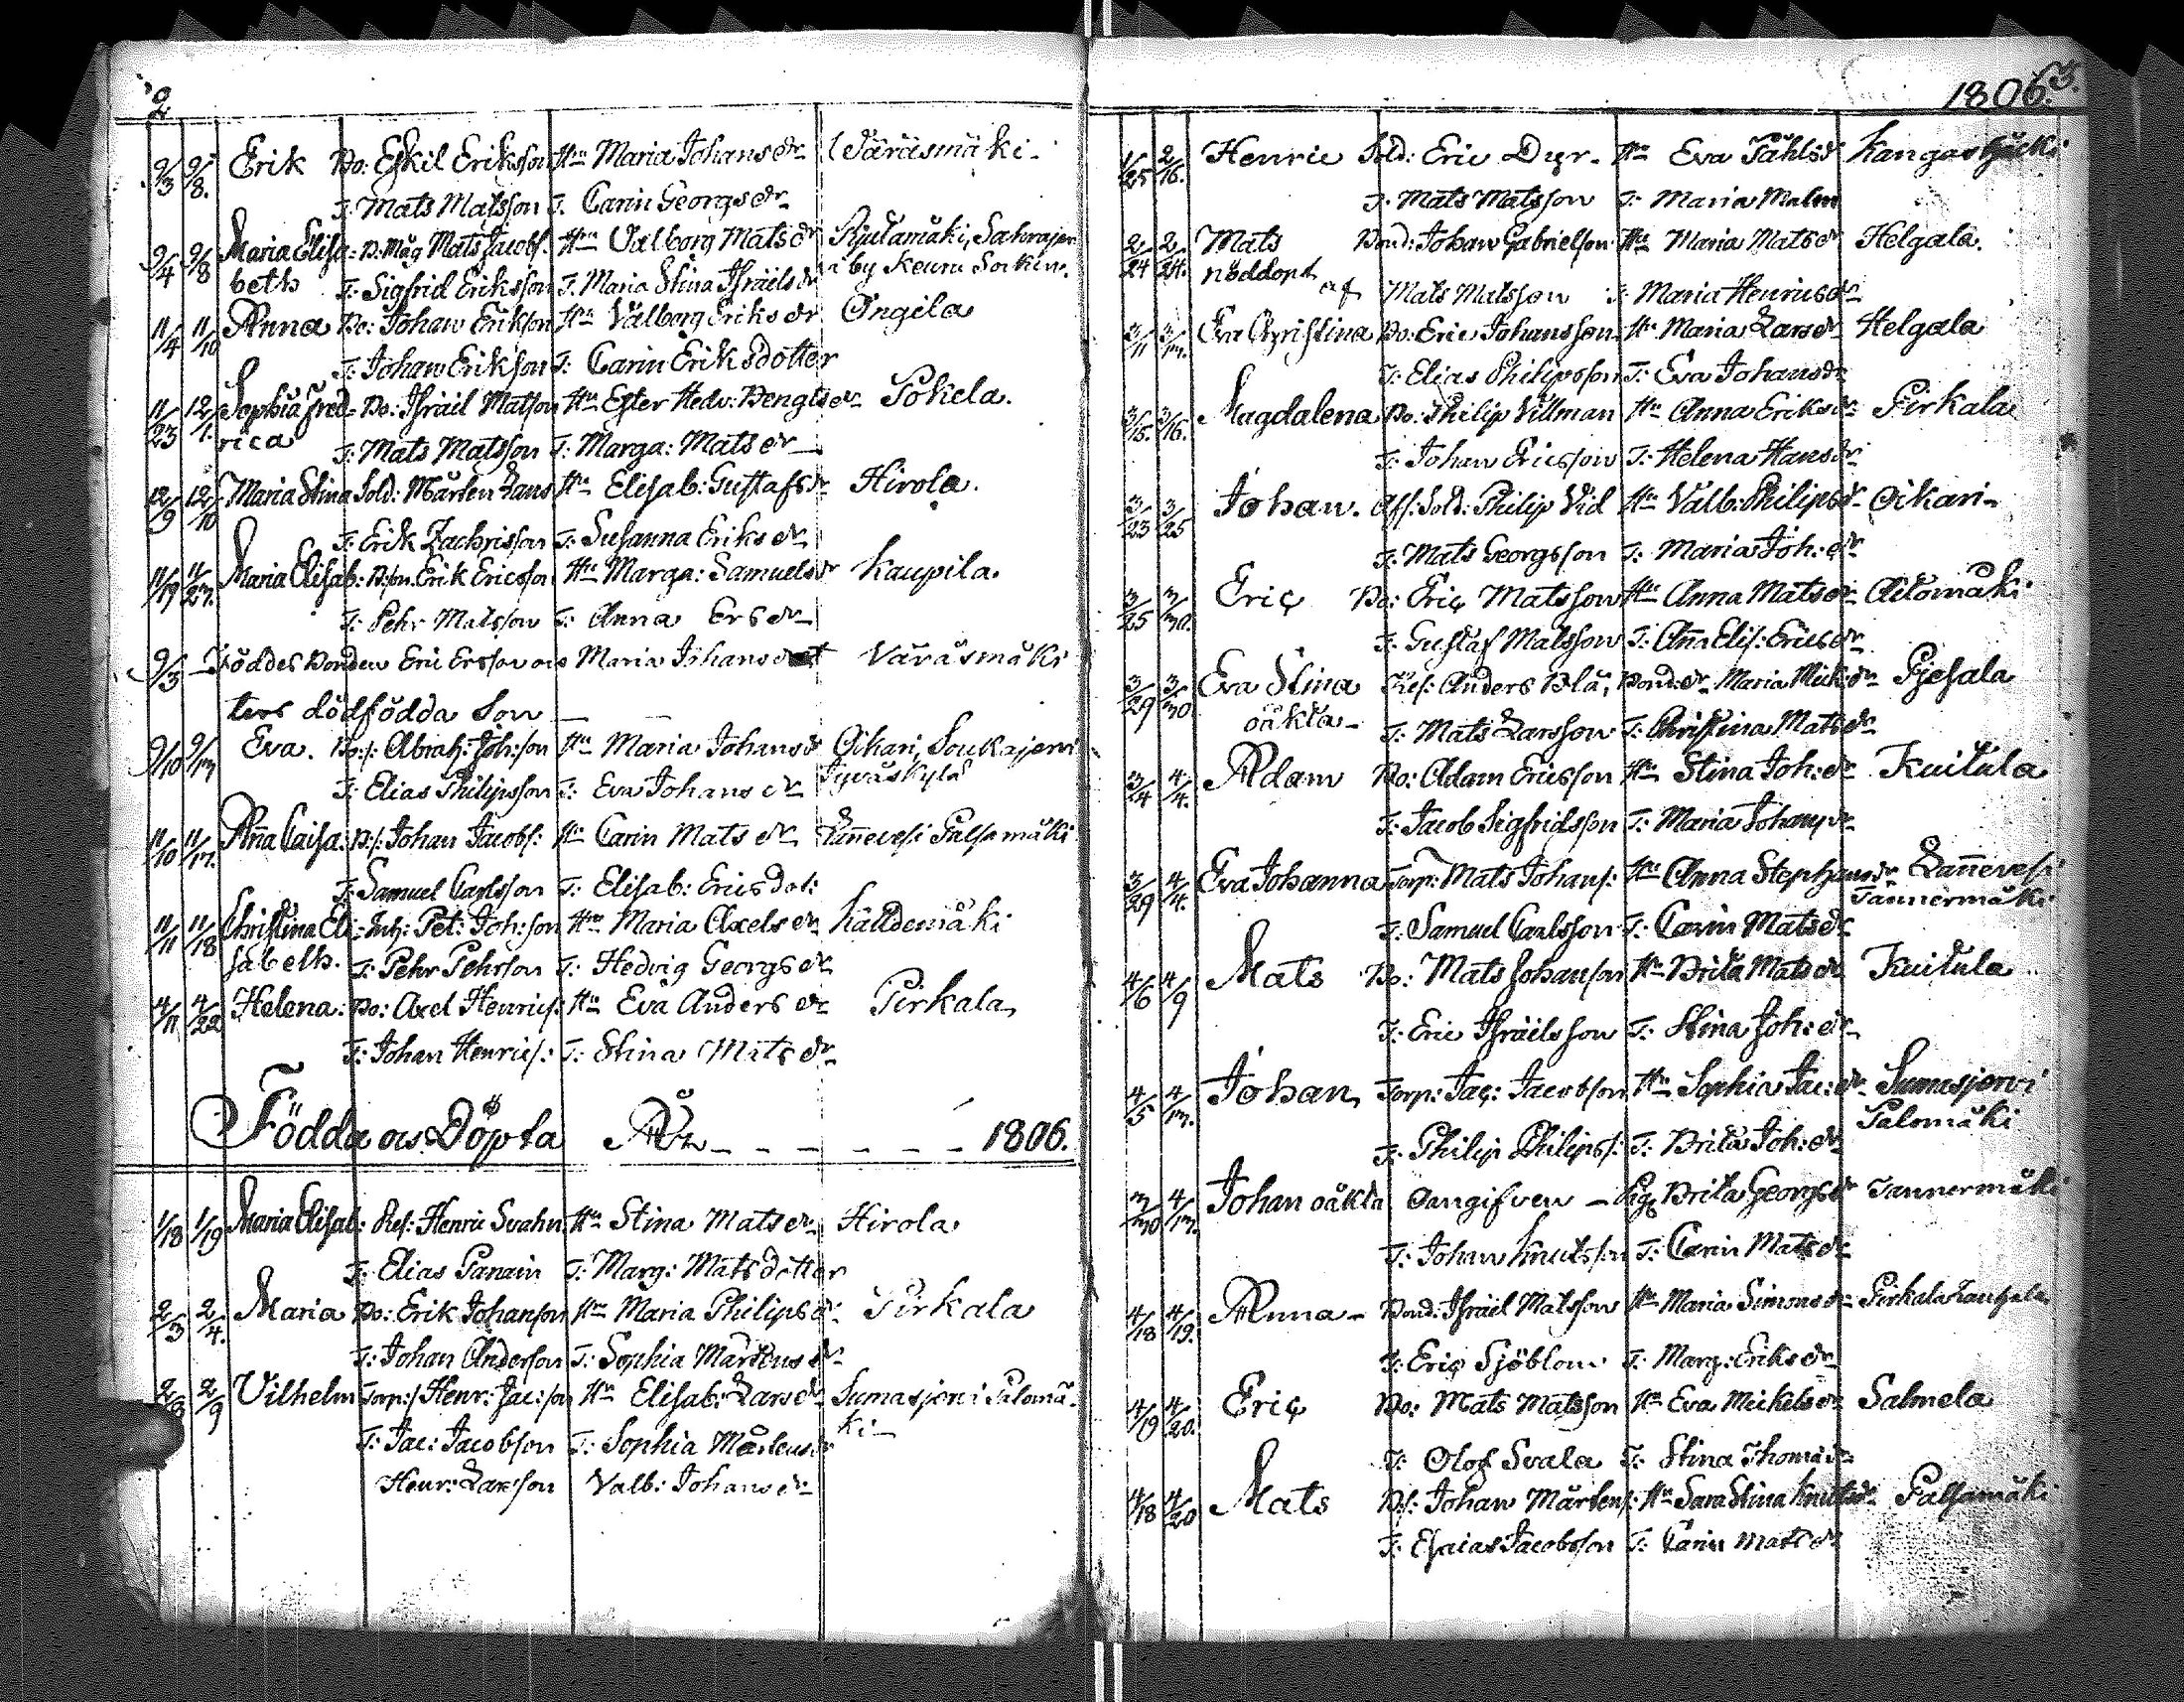 2
9/3 9/8. Erik Bo: Eskil Eriksson Hu Maria Johansdr Väräsmäki
T: Mats Matsson T: Carin Georgsdr
9/4 9/8 Maria Elisa= B: Måg Mats Jacobs: Hu Valborg Matsdr
beth T: Sigfrid Eriksson T: Maria Stina Israëlsdr i by Keuru Sokn.
11/4 11/10 Anna Bo: Johan Erikson Hu Valborg Eriksdr Ongila
T: Johan Erikson T: Carin Eriksdotter
11/23 12/1. Sophia Fred= Bo: Israil Matson Hu Ester Hedv: Bengtsdr Pohela.
rica T: Mats Matsson T: Marga: Matsdr
12/9 12/10 Maria Stina Sold: Mårten Hu Elisab: Gustafsdr Hirola.
T: Erik Zachrisson T: Susanna Eriksdr
11/19 11/27. Maria Elisab: B:son Erik Ericsson Hu Marga: Samuelsdr Kaupila.
T: Pehr Matsson T: Anna Ersdr
9/3 Föddes Bonden Eric Ersson och Maria Johansdot Väräsmäki
ters dödfödda Son
9/10 9/17 Eva. Bo:s: Abrah: Joh:son Hu Maria Johansdr Oikari, Soukajervi
T: Elias Philipsson T: Eva Johansdr Jyväskylä
11/10 11/17. Anna Caisa. B:s: Johan Jacobs: Hu Carin Matsdr Lannevesi Palsamäki
T: Samuel Carlsson T: Elisab: Ericsdot:
11/11 11/18 Christina Eli: Inh: Pet: Joh:son Hu Maria Axelsdr Källdemäki
sabeth. T: Pehr Pehrson T: Hedvig Georgsdr
4/11 4/22 Helena: Bo: Axel Henrics: Hu Eva Andersdr Pirkala
T: Johan Henrics: T: Stina Matsdr
Födda och Döpta År 1806.
1/18 1/19 Maria Elisab: Ref: Henric Svahn Hu Stina Matsdr Hirola
T: Elias Panain T: Marg: Matsdotter
2/3 2/4. Maria Bo: Erik Johanson Hu Maria Philipsdr Pirkala
T: Johan Anderson T: Sophia Mårtensdr
2/8 2/9 Vilhelm Torp: Henr: Jac:son Hu Elisab: Larsdr Sumasjervi Palomä=
T: Jac: Jacobson T: Sophia Mårtensdr ki
Henr: Larsson Valb: Johansdr
1806. 3.
1/25 2/16. Henric Sold: Eric Dyr Hu Eva Påhlsdr Kangashäcki
T: Mats Matsson T: Maria Malm
2/24 2/24. Mats Bond: Johan Gabrielson Hu Maria Matsdr Helgala.
nöddopt af Mats Matsson T: Maria Henricsdr
3/11 3/17. Eva Christina Bo: Eric Johansson Hu Maria Larsdr Helgala
T: Elias Philipsson T: Eva Johansdr
3/15. 3/16. Magdalena Bo: Philip Villman Hu Anna Eriksdr Pirkala
T: Johan Ericsson T: Helena Hansdr
3/23 3/25 Johan. Aff: Sold: Philip Vid Hu Valb: Philipsdr Oikari
T: Mats Georgsson T: Maria Joh:dr
3/25 3/30. Eric Bo: Eric Matsson Hu Anna Matsdr Aitomäki
T: Gustaf Matsson T: Anna Elis: Ericsdr
3/29 3/30 Eva Stina Ref: Anders Blå, Bond:dr Maria Mick:dr Pjesala
oäkta T: Mats Larsson T: Christina Matsdr
3/24 4/4. Adam Bo: Adam Ericsson Hu Stina Joh:dr Kuitula
T: Jacob Sigfridsson T: Maria Johansdr
3/29 4/4. Eva Johanna Torp: Mats Johans: Hu Anna Stephansdr Lannevesi
Tannermäki
T: Samuel Carlsson T: Carin Matsdr
4/6 4/9 Mats Bo: Mats Johanson Hu Brita Matsdr Kuitula
T: Eric Israëlsson T: Stina Joh:dr
4/5 4/17. Johan Torp: Jac: Jacobson Hu Sophia Jac:dr Sumasjervi
Palomäki
T: Philip Philips: T: Brita Joh:dr
3/30 4/17. Johan oäkta Oangifven Pig. Brita Georgsdr Tannermäki
T: Johan Knutsson T: Carin Matsdr
4/18 4/19. Anna Bond: Israël Matsson Hu Maria Simonsdr Pirkala
T: Eric Sjöblom T: Marg: Eriksdr
4/19 4/20. Eric Bo: Mats Matsson Hu Eva Mickelsdr Salmela
T: Olof Svala T: Stina Thomædr
4/18 4/20 Mats B:s: Johan Mårtens: Hu Sara Stina Knutsdr Palsamäki
T: Esaias Jacobsson T: Carin Matsdr